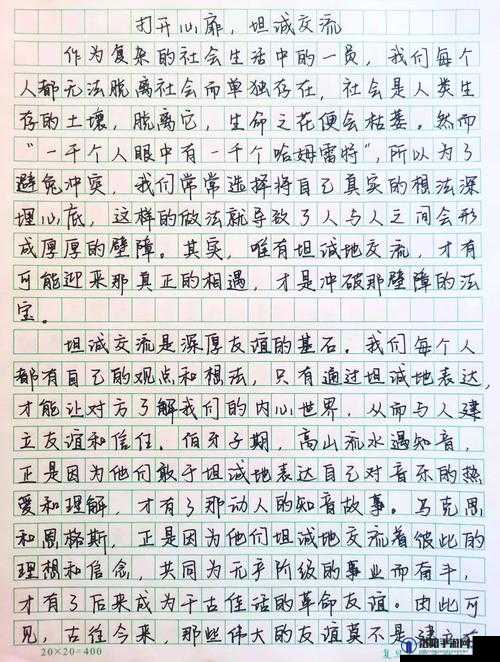 打开心扉，坦诚交流
作为复杂的社会生活中的一员，我们每个
人都无法脱离社会而单独存在，社会是人类生
存的土壤，脱离它，生命之花便会枯萎。然而
“一千个人眼中有一千个哈姆雷特”，所以为了
避免冲突，我们常常选择将自己真实的想法深
埋心底，这样的做法就导致了人与人之间会形
成厚厚的壁障。其实，唯有坦诚地交流，才有
可能迎来那真正的相遇，才是冲破那壁障的法
宝。
坦诚交流是深厚友谊的基石。我们每个人
都有自己的观点和想法，只有通过坦诚地表达，
才能让对方了解我们的内心世界，从而与人建
立友谊和信任。伯牙子期，高山流水遇知音，
正是因为他们敢于坦诚地表达自己对音乐的热
爱和理解，才有了那动人的知音故事。马克思
和恩格斯，正是因为他们坦诚地交流着彼此的
理想和信念，共同为无产阶级的事业而奋斗，
才有了后来成为千古佳话的革命友谊。由此可
见，古往今来，那些伟大的友谊莫不是建立
20×20=400
洛阳手游网